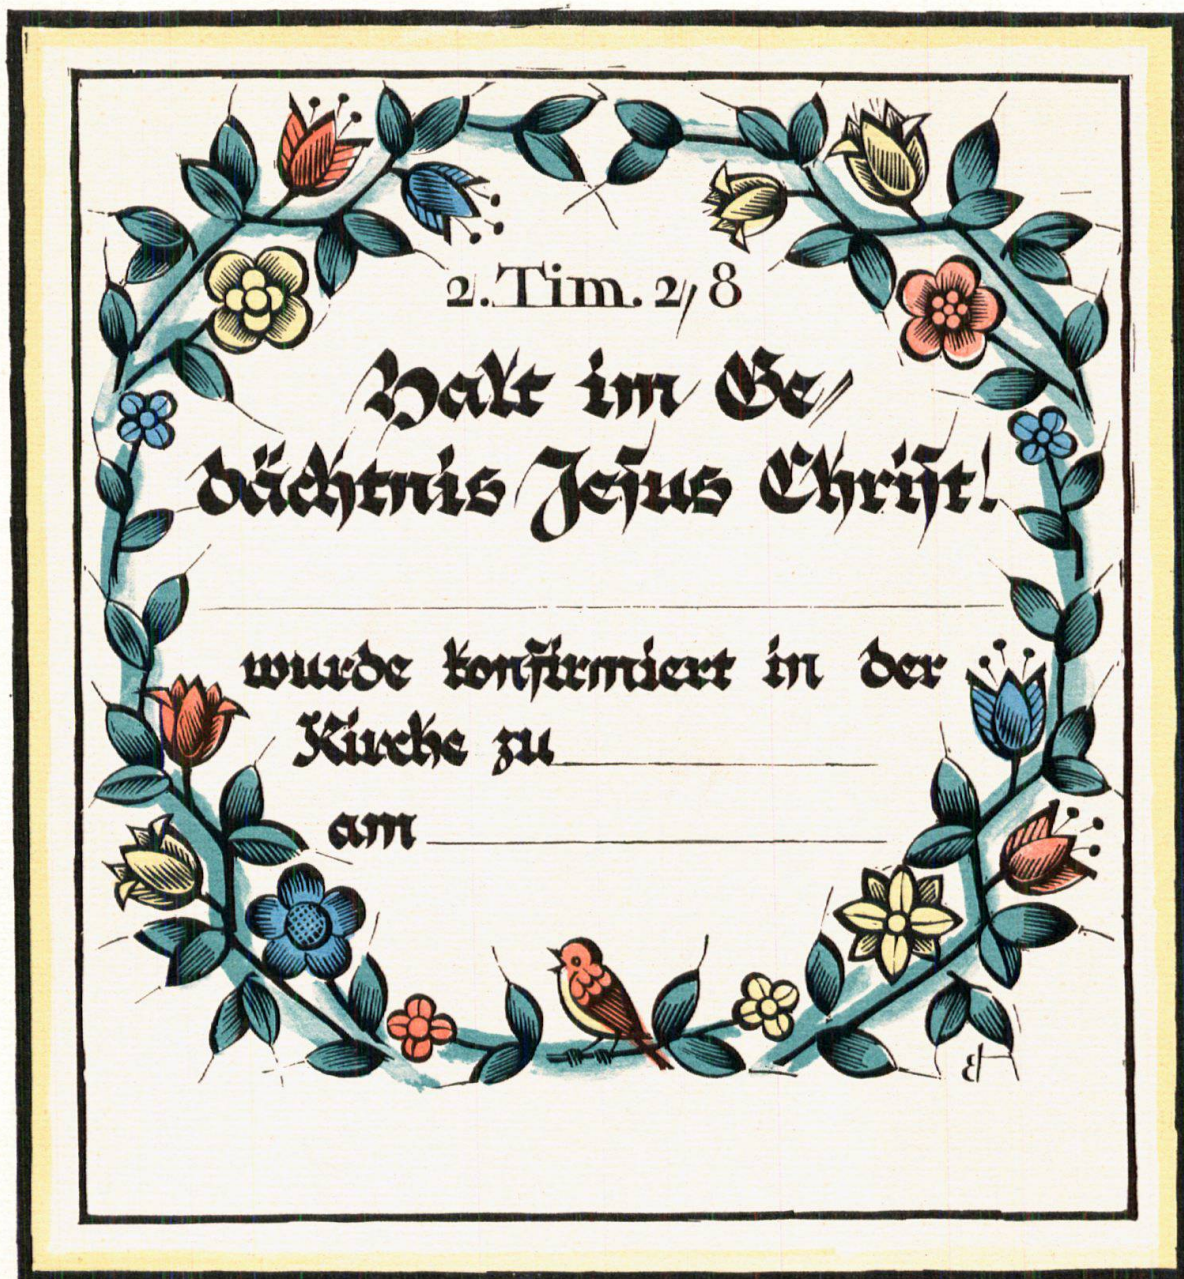 2. Tim. 2, 8
Halt im Ge/
dächtnis Jesus Christ!
wurde konfirmiert in der
Kirche zu
am